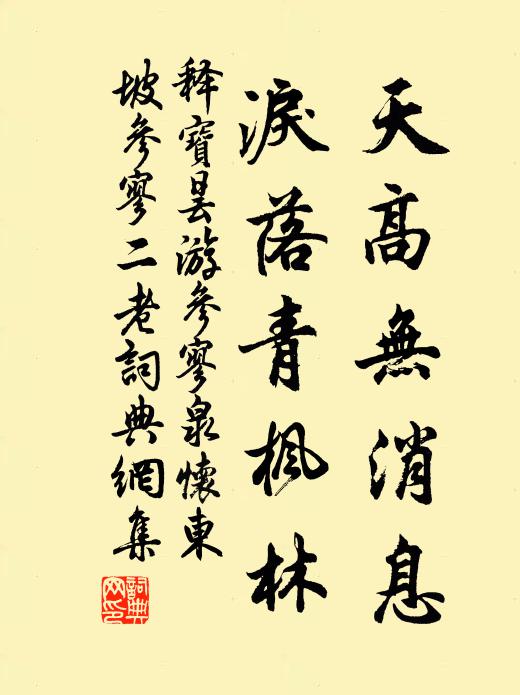 天高無消息
淚落青楓林
释寶昙游參寥泉懷東
坡參寥二老詞典網集
詞典網印